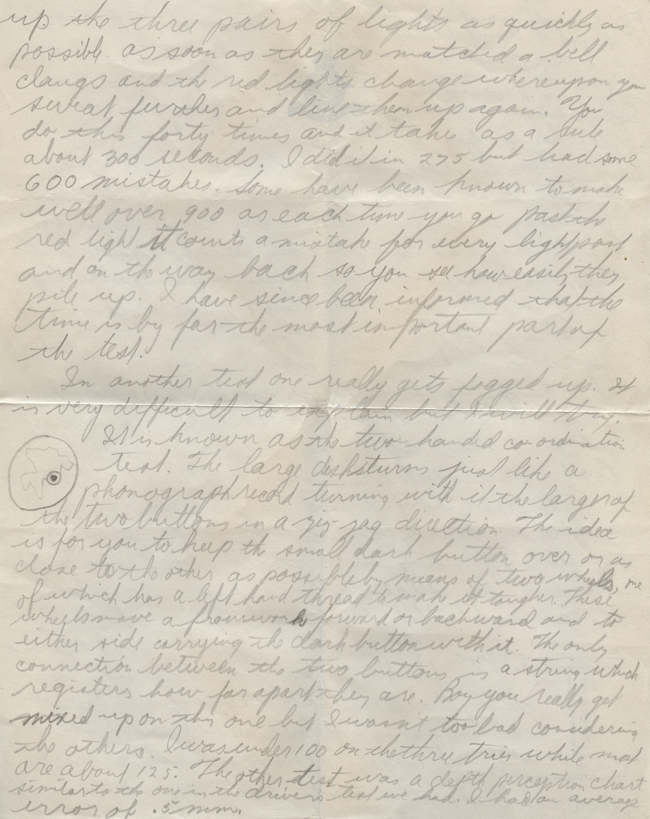 up the three pairs of lights as quickly as
possible. as soon as they are matched a bell
clangs and the red lights change whereupon you
sweat further and line them up again. You
do this forty times and it takes as a rule
about 300 seconds. I did it in 275 but had some
600 mistakes. Some have been known to make
well over 900 as each time you go past the
red light it counts a mistake for every light past
and on the way back so you see how easily they
pile up. I have since been informed that the
time is by far the most important part of
the test.
In another test one really gets fogged up. It
is very difficult to explain but I will try.
It is known as the two handed coordination
test. The large disk turns just like a
phonograph record turning with it the larger of
the two buttons in a zig zag direction. The idea
is for you to keep the small dark button over or as
close to the other as possible by means of two wheels, one
of which has a left hand thread to make it tougher. These
wheels move a forward or backward and to
either side carrying the dark button with it. The only
connection between the two buttons is a string which
registers how far apart they are. Boy you really get
mixed up on this one but I wasn't too bad considering
the others. I was under 100 on the three tries while most
are about 125. The other test was a depth perception chart
similar to the one in the drivers test we had. I had an average
error of .5 mm.